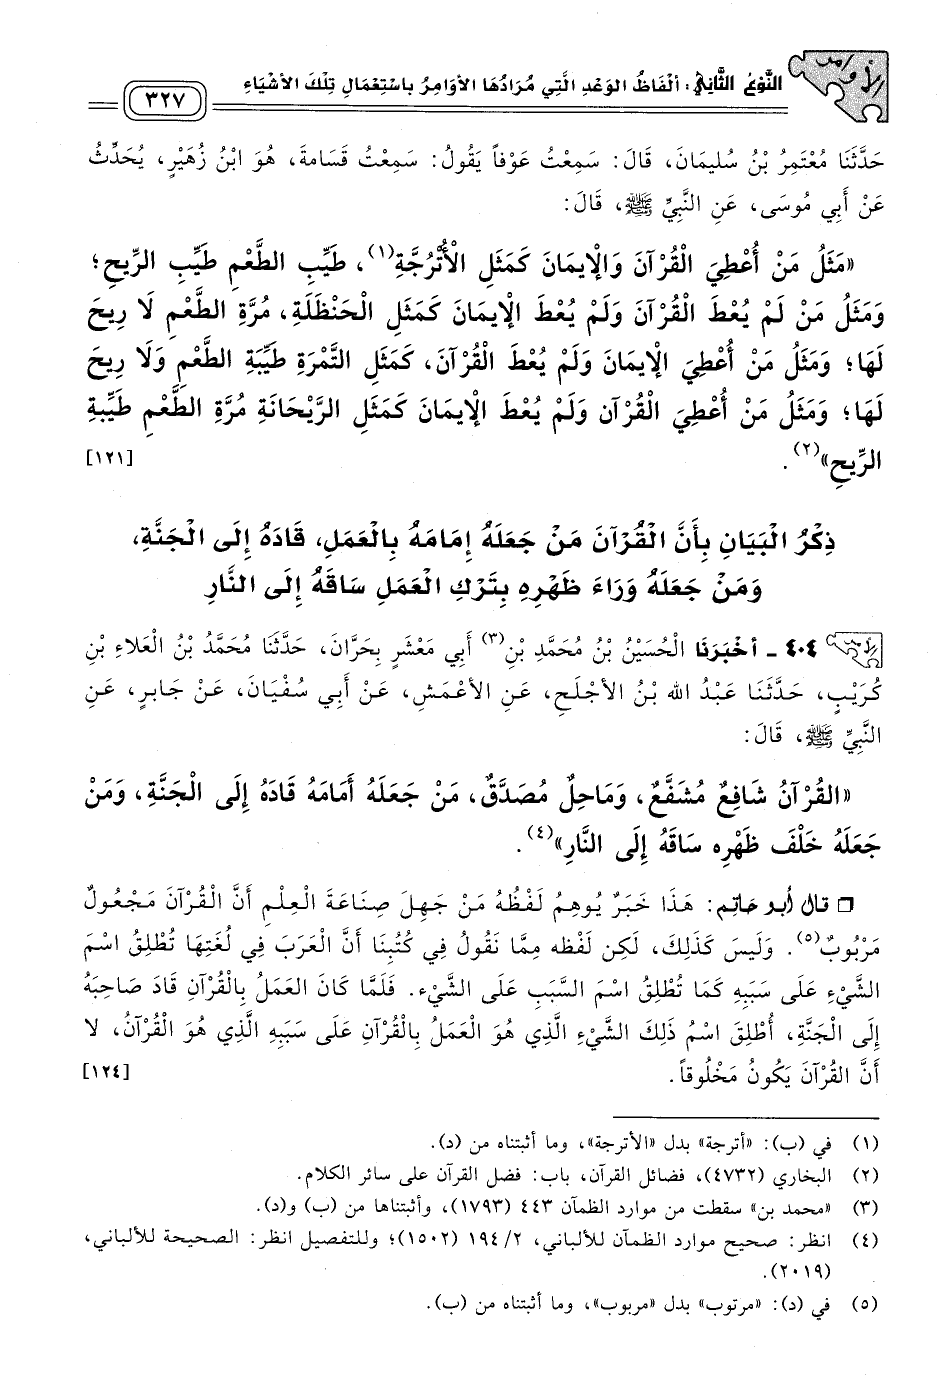 الأوامر
النَّوْعُ الثَّانِي: ألْفَاظُ الوَعْدِ الَّتِي مُرَادُهَا الأوَامِرُ بِاسْتِعْمَالِ تِلْكَ الأشْيَاءِ
٣٢٧
حَدَّثَنَا مُعْتَمِرُ بْنُ سُليمَانَ، قَالَ: سَمِعْتُ عَوْفاً يَقُولُ: سَمِعْتُ قَسَامةَ، هُوَ ابْنُ زُهَيْرٍ، يُحَدِّثُ
عَنْ أَبِي مُوسَى، عَنِ النَّبِيِّ ﷺ، قَالَ:
«مَثَلُ مَنْ أُعْطِيَ الْقُرْآنَ وَالإيمَانَ كَمَثَلِ الْأُتْرُجَّةِ(١)، طَيِّبِ الطَّعْمِ طَيِّبِ الرِّيحِ؛
وَمَثَلُ مَنْ لَمْ يُعْطَ الْقُرْآنَ وَلَمْ يُعْطَ الْإيمَانَ كَمَثَلِ الْحَنْظَلَةِ، مُرَّةِ الطَّعْمِ لَا رِيحَ
لَهَا؛ وَمَثَلُ مَنْ أُعْطِيَ الْإيمَانَ وَلَمْ يُعْطَ الْقُرْآنَ، كَمَثَلِ التَّمْرَةِ طَيِّبَةِ الطَّعْمِ وَلَا رِيحَ
لَهَا؛ وَمَثَلُ مَنْ أُعْطِيَ الْقُرْآن وَلَمْ يُعْطَ الْإيمَانَ كَمَثَلِ الرَّيْحَانَةِ مُرَّةِ الطَّعْمِ طَيِّبةِ
الرِّيحِ»(٢). [١٢١]
ذِكْرُ الْبَيَانِ بِأَنَّ الْقُرْآنَ مَنْ جَعَلَهُ إمَامَهُ بِالْعَمَلِ، قَادَهُ إلَى الْجَنَّةِ،
وَمَنْ جَعَلَهُ وَرَاءَ ظَهْرِهِ بِتَرْكِ الْعَمَلِ سَاقَهُ إلَى النَّارِ
٤٠٤ - أخْبَرَنَا الْحُسَيْنُ بْنُ مُحَمَّدِ بْنِ(٣) أَبِي مَعْشَرٍ بِحَرَّانَ، حَدَّثَنَا مُحَمَّدُ بْنُ الْعَلاءِ بْنِ
كُرَيْبٍ، حَدَّثَنَا عَبْدُ الله بْنُ الأَجْلَحِ، عَنِ الأَعْمَشِ، عَنْ أَبِي سُفْيَانَ، عَنْ جَابِرٍ، عَنِ
النَّبِيِّ ﷺ، قَالَ:
«القُرْآنُ شَافِعٌ مُشَفَّعٌ، وَمَاحِلٌ مُصَدَّقٌ، مَنْ جَعَلَهُ أَمَامَهُ قَادَهُ إلَى الْجَنَّةِ، وَمَنْ
جَعَلَهُ خَلْفَ ظَهْرِه سَاقَهُ إلَى النَّارِ»(٤).
❏ قال أبو حاتم: هَذَا خَبَرٌ يُوهِمُ لَفْظُهُ مَنْ جَهِلَ صِنَاعَةَ الْعِلْمِ أَنَّ الْقُرْآنَ مَجْعُولٌ
مَرْبُوبٌ(٥). وَلَيسَ كَذلِكَ، لَكِن لَفْظه مِمَّا نَقُولُ فِي كُتُبِنَا أَنَّ الْعَرَبَ فِي لُغَتِهَا تُطْلِقُ اسْمَ
الشَّيْءِ عَلَى سَبَبِهِ كَمَا تُطْلِقُ اسْمَ السَّبَبِ عَلَى الشَّيْء. فَلَمَّا كَانَ العَمَلُ بِالْقُرْآنِ قَادَ صَاحِبَهُ
إِلَى الْجَنَّةِ، أُطْلِقَ اسْمُ ذَلِكَ الشَّيْءِ الَّذِي هُوَ الْعَمَلُ بِالْقُرْآنِ عَلَى سَبَبِهِ الَّذِي هُوَ الْقُرْآنُ، لا
أَنَّ القُرْآنَ يَكُونُ مَخْلُوقاً. [١٢٤]
(١) في (ب): «أترجة» بدل «الأترجة»، وما أثبتناه من (د).
(٢) البخاري (٤٧٣٢)، فضائل القرآن، باب: فضل القرآن على سائر الكلام.
(٣) «محمد بن» سقطت من موارد الظمآن ٤٤٣ (١٧٩٣)، وأثبتناها من (ب) و(د).
(٤) انظر: صحيح موارد الظمآن للألباني، ١٩٤/٢ (١٥٠٢)؛ وللتفصيل انظر: الصحيحة للألباني،
(٢٠١٩).
(٥) في (د): «مرتوب» بدل «مربوب»، وما أثبتناه من (ب).